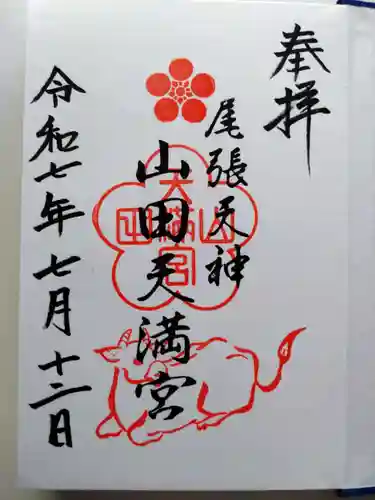 奉拝
尾張天神
山田天満宮
令和七年七月十二日
山田天満宮